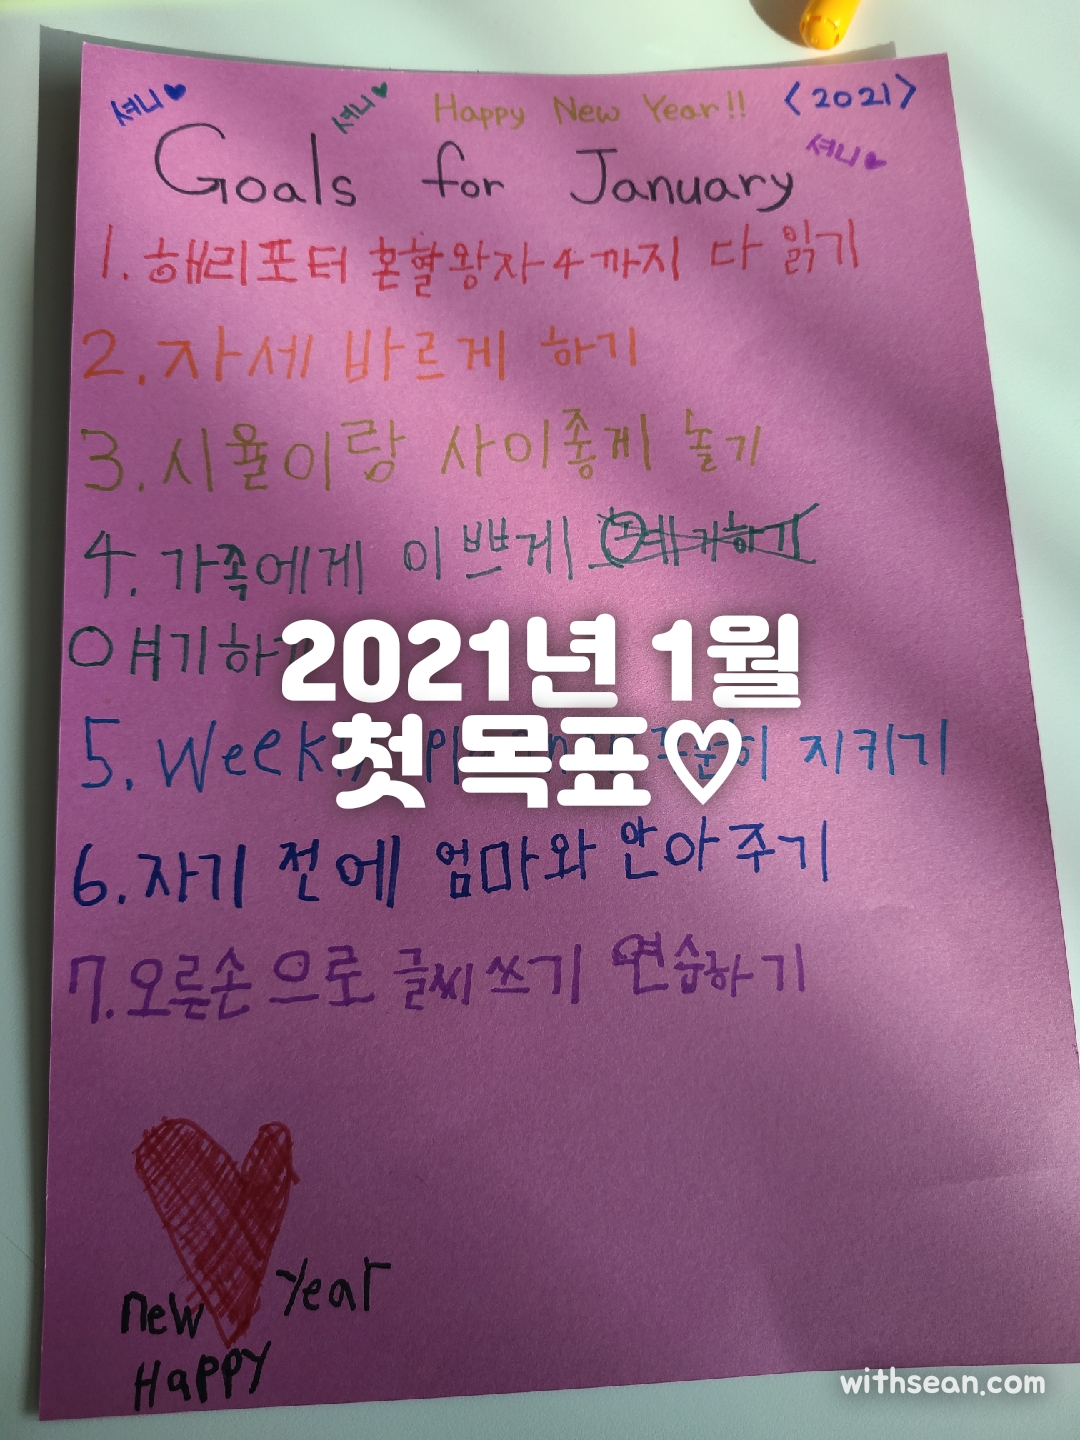 셔니♥ 셔니♥ Happy New Year!! <2021>
Goals for January 셔니♥
1. 해리포터 혼혈왕자4까지 다 읽기
2. 자세 바르게 하기
3. 시율이랑 사이좋게 놀기
4. 가족에게 이쁘게
얘기하
2021년 1월
첫 목표♡
5. 지키기
6. 자기 전에 엄마와 안아주기
7. 오른손으로 글씨쓰기 연습하기
new year
Happy
withsean.com